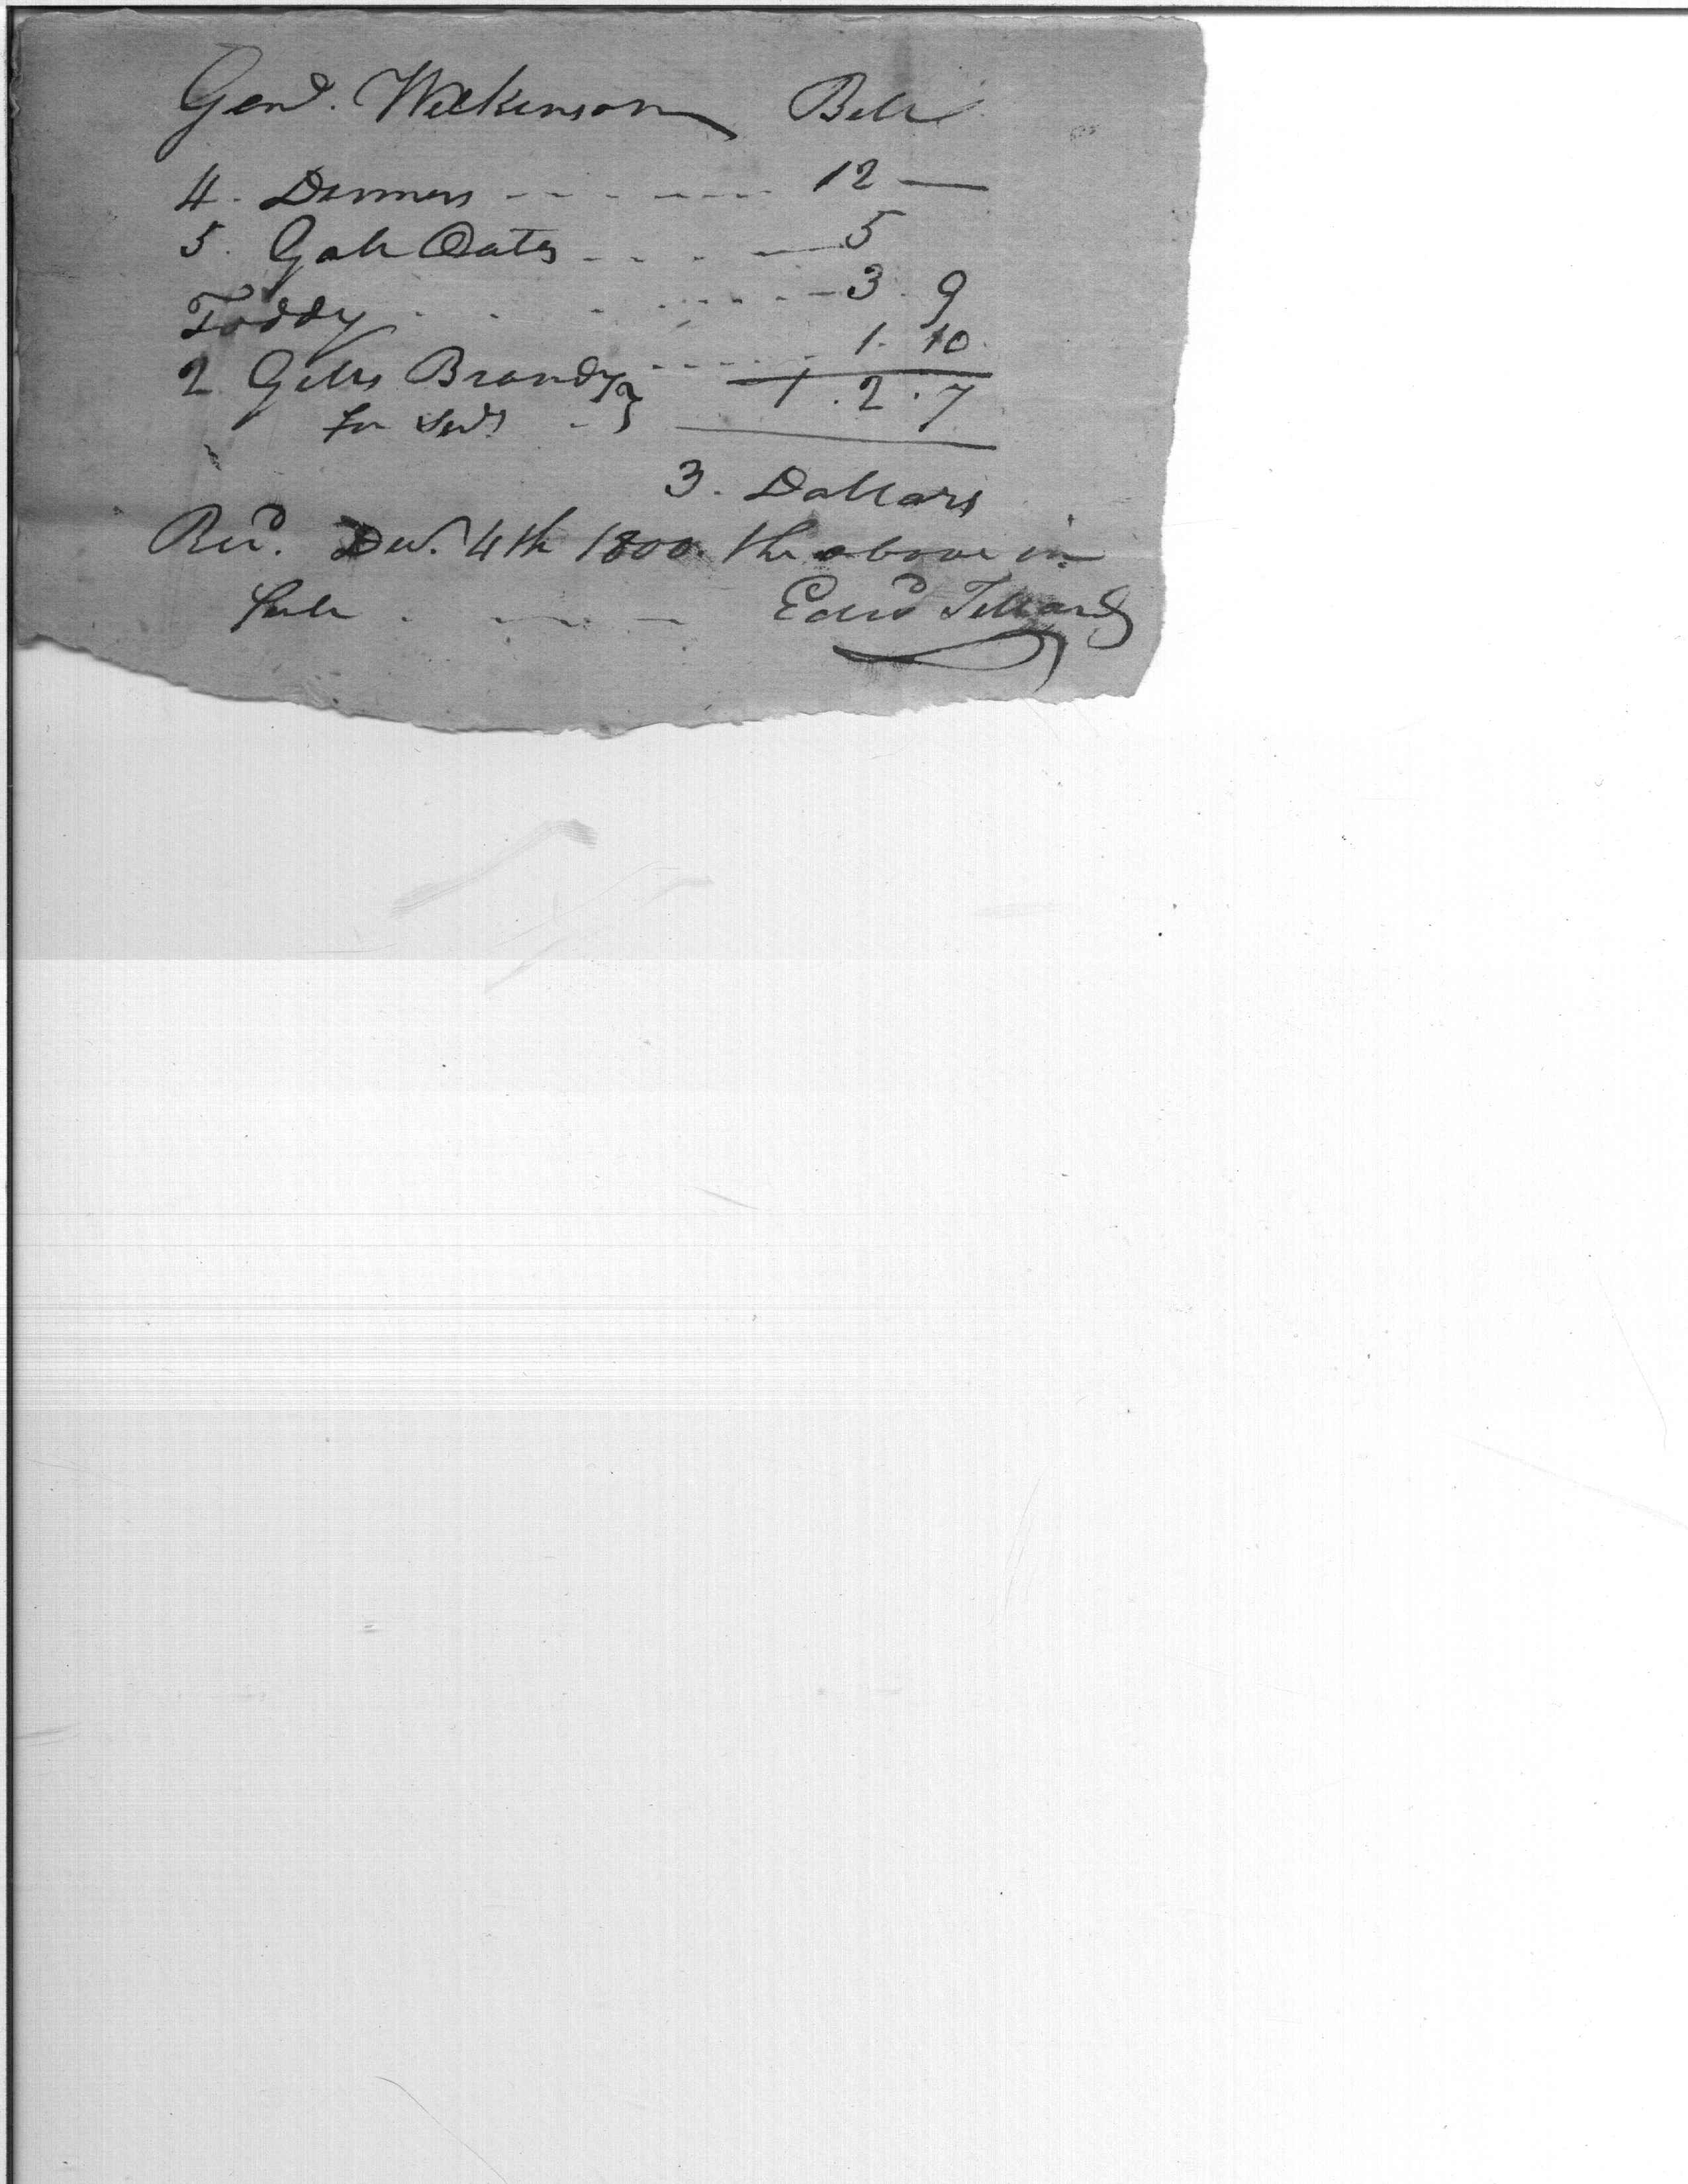 Genl. Wilkinson Bill
4. Dinners - - - - - - - 12 —
5. Galls Oats - - - - — 5
Toddy - - - - - - - 3. 9
2 Gills Brandy } - - - - 1. 10
for Servt -
1. 2. 7
3. Dollars
Recd. Decr. 4th 1800. the above in
full - - - - Edwd Tillard